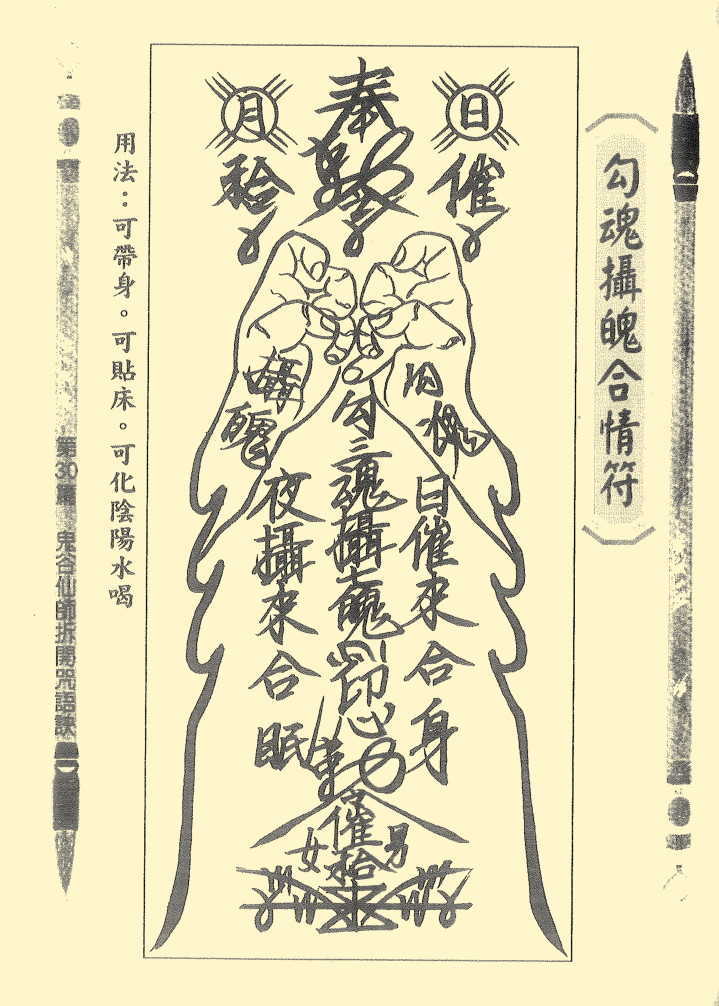 勾魂攝魄合情符
日
催
奉
月
日催來合身
勾三魂攝七魄
印心
動
夜攝來合眠
催
男
女
用法：可帶身。可貼床。可化陰陽水喝
第30篇 鬼谷仙師拆開咒語訣